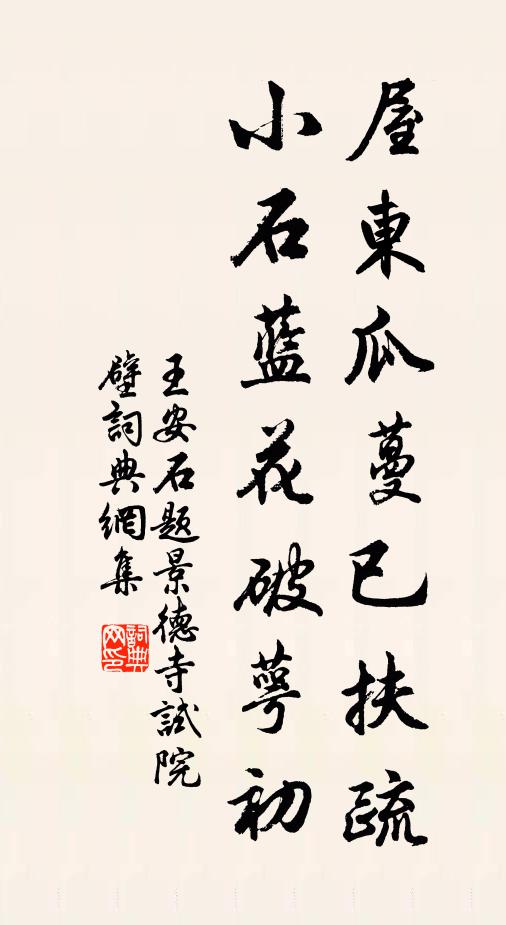 屋東瓜蔓已扶疏
小石藍花破萼初
王安石題景德寺試院
壁詞典網集
詞典網印